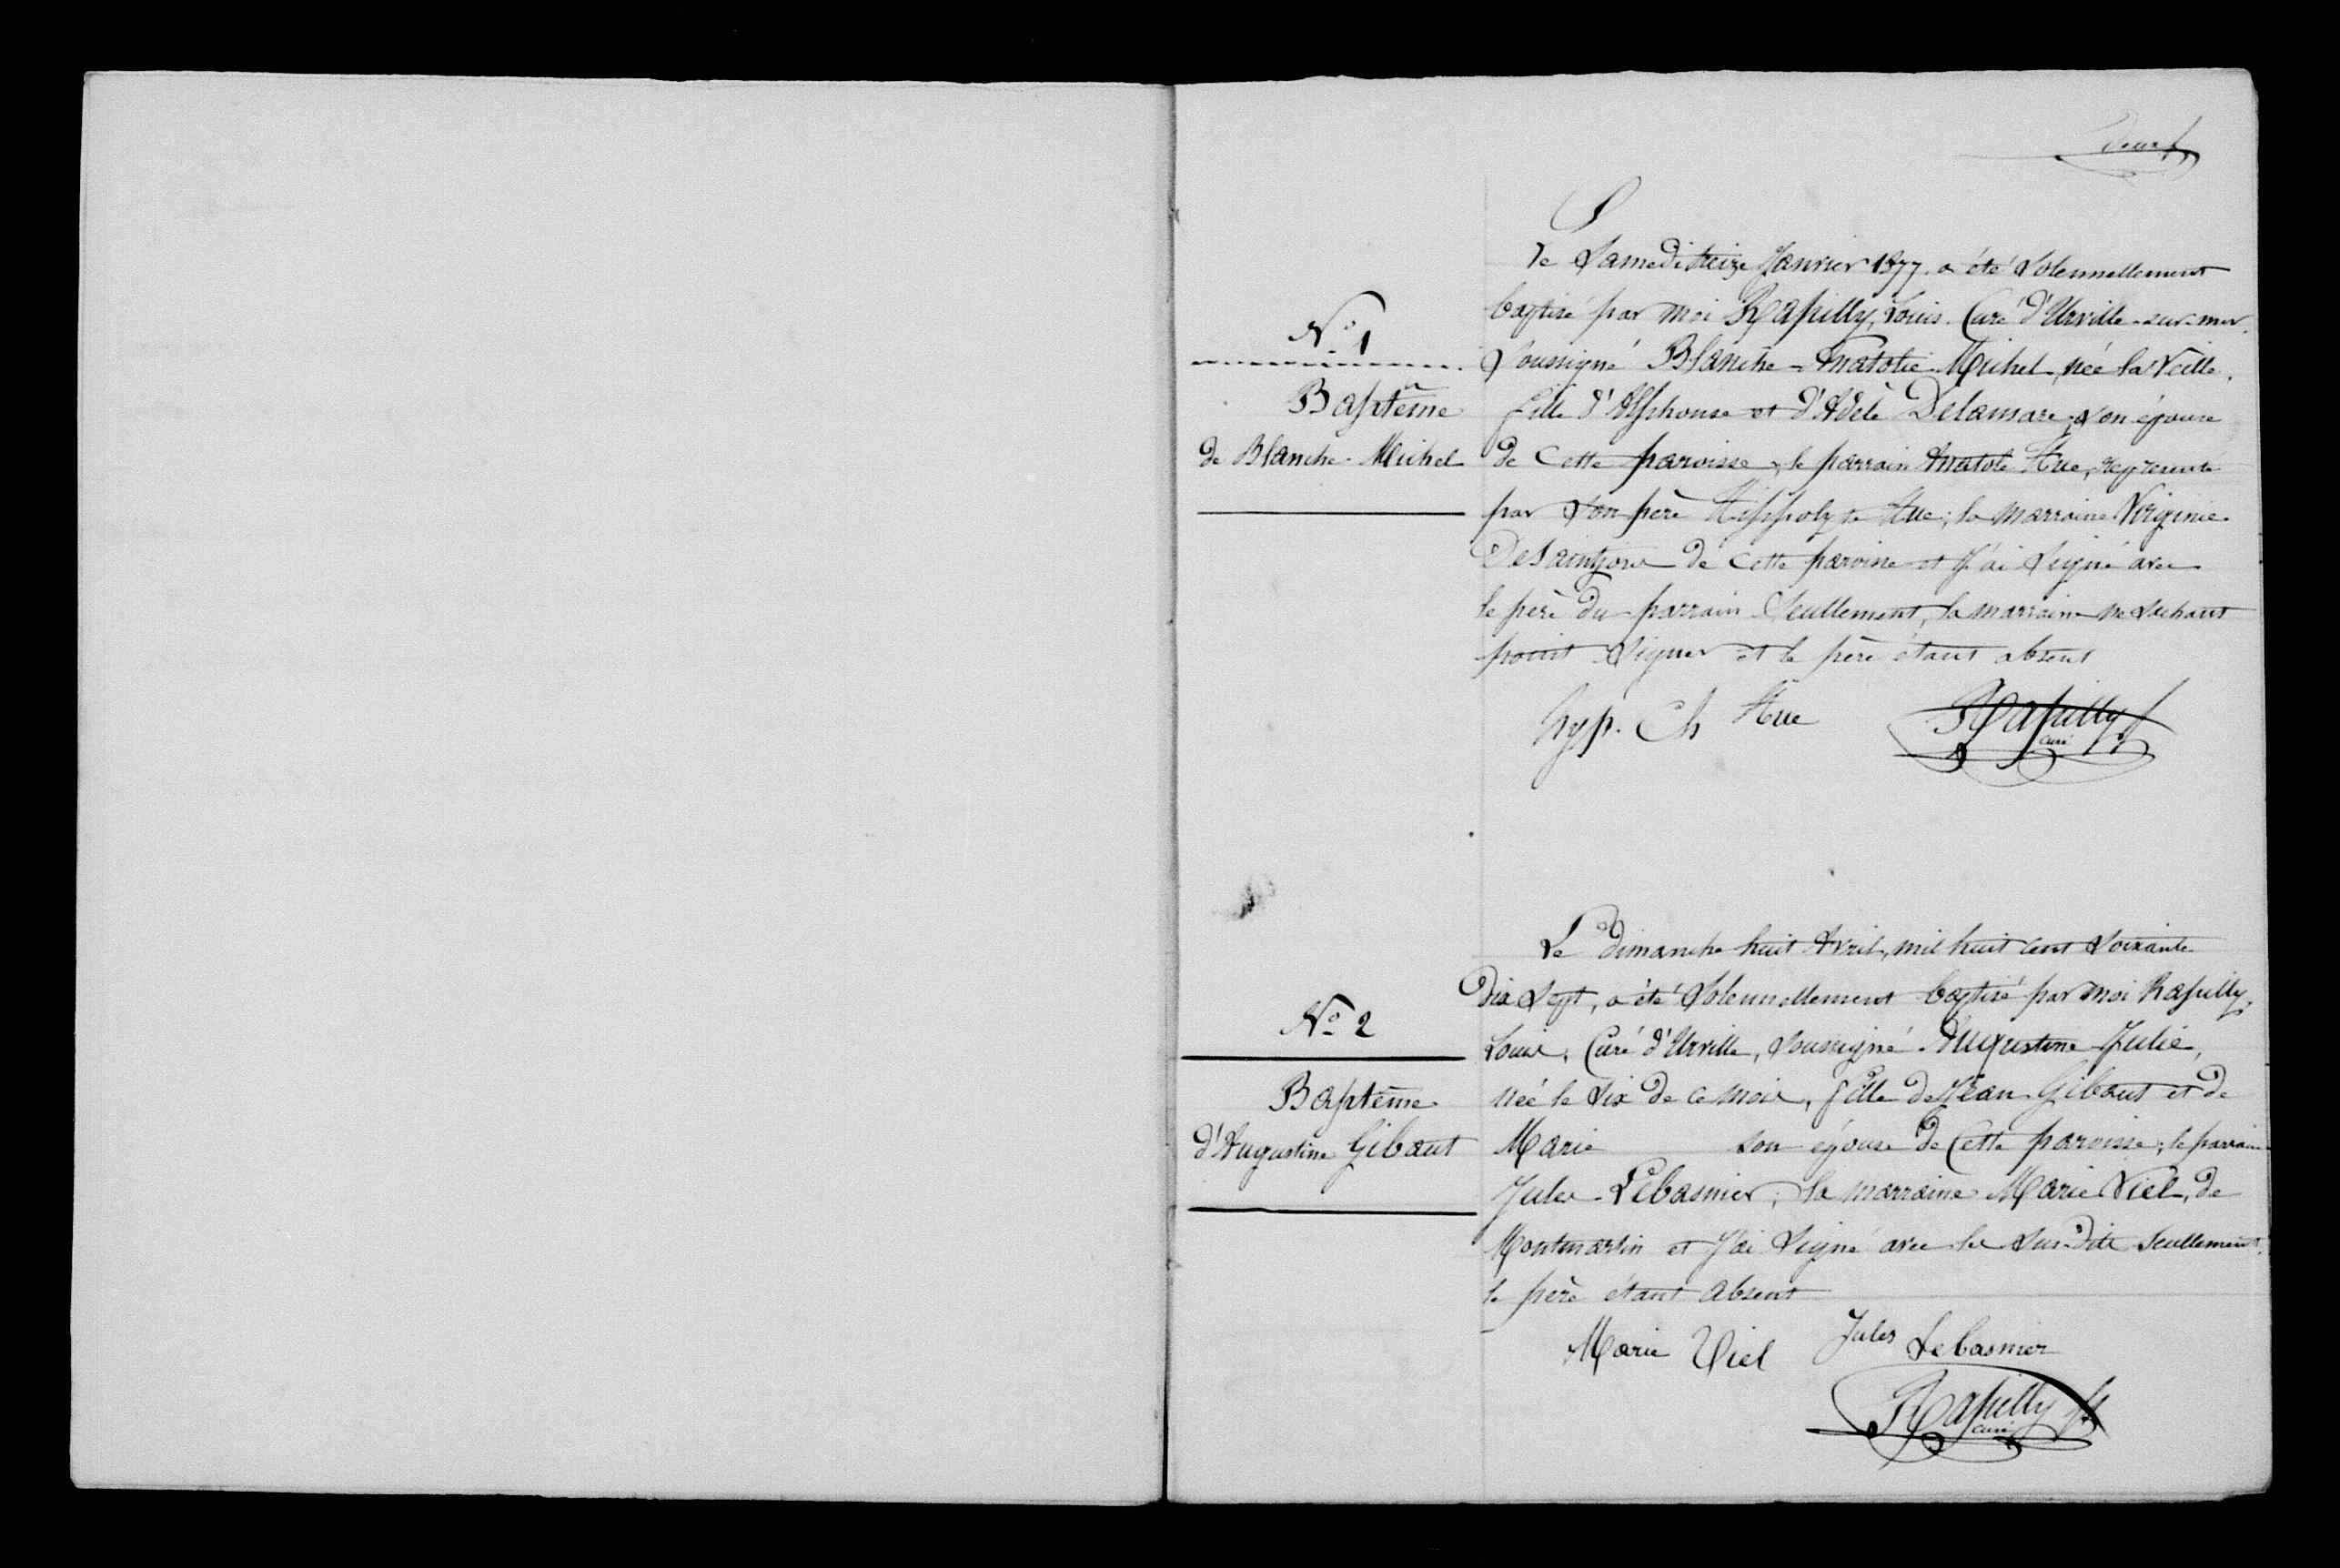 Deux
Le Samedi treize Janvier 1877. a été Solennellement
baptisé par moi Rapilly, Louis. Curé d'Urville-sur-mer.
N° 1
Soussigné Blanche-Anatolie Michel, née la Veille.
Baptême
fille d'Alphonse et d'Adèle Delamare, son épouse
de Blanche Michel
de Cette paroisse, le parrain Anatole Hue, représenté
par Son père Hippolyte Hue; la marraine Virginie
de Cette paroisse et J'ai Signé avec
le père du parrain Seullement, la marraine ne Sachant
point Signer et le père étant absent
hyp. Ch Hue
Rapilly
curé
Le dimanche huit Avril, mil huit cent Soixante
Dix Sept, a été Solennellement baptisé par moi Rapilly,
N° 2
Louis, Curé d'Urville, Soussigné Augustine Julie,
Baptême
née le Six de ce mois, fille de Jean Gibaut et de
d'Augustine Gibaut
Marie son épouse de Cette paroisse; le parrain
Jules Lebasnier; la marraine Marie Viel, de
Montmartin et J'ai Signé avec les Sus-Dits Seullement.
le père étant absent
Marie Viel Jules Lebasnier
Rapilly
curé